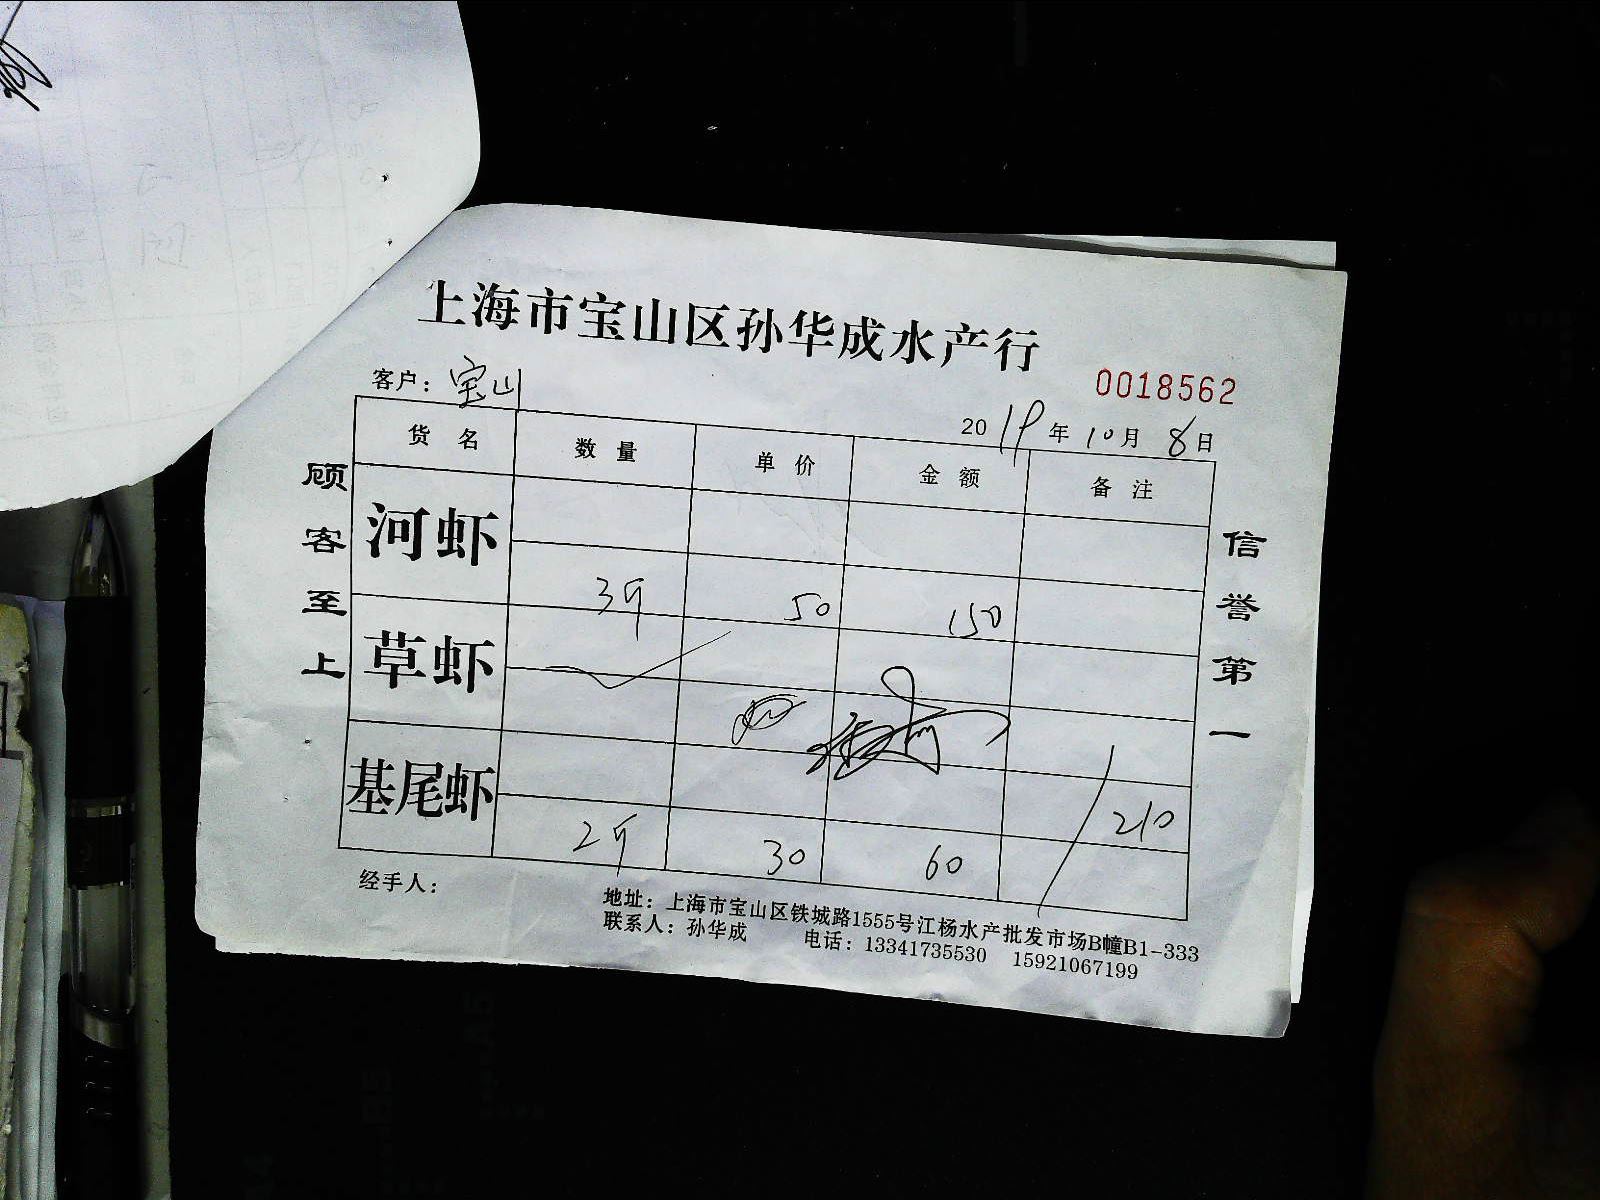 上海市宝山区孙华成水产行
0018562
客户：宝山
2019年10月8日
货名 数量 单价 金额 备注
河虾
3斤 50 150
草虾
基尾虾
210
2斤 30 60
顾客至上
信誉第一
经手人：
地址：上海市宝山区铁城路1555号江杨水产批发市场B幢B1-333
联系人：孙华成 电话：13341735530 15921067199